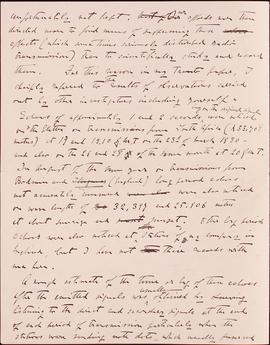 unfortunately not kept, our efforts were then
directed more to find means of suppressing those
effects (which were seriously disturbed radio
transmission) than to scientifically study and record
them. For this reason in my paper, I
only referred to results of observations carried
out by other investigators including yourself -
Echoes of approximately 1 and 2 seconds, were
on transmissions from South Africa (
metres) at 17 and 19,10 g.m.t. on the 23rd of March 1930 -
and also on the 26 and 29 of the same month at 20 g.m.t.
In August of the same year on transmissions from
Bodmin and (England) long period echoes
not accurately were also noticed
on wave lengths of 32,397 and 25,906 metres
at about sunrise and sunset. Other long period
echoes were also noticed at stations of my company in
England, but I have not these records with
me here.
A rough estimate of the time or lag of these echoes
after the emitted signals was usually obtained by
listening to the direct and secondary signals at the end
of each period of transmission particularly when the
stations were sending only dots, which usually